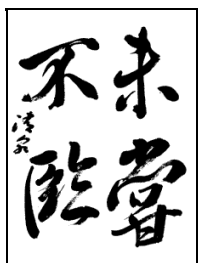 未嘗
不臨
清泉